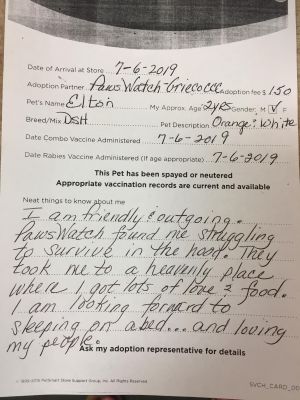 Date of Arrival at Store 7-6-2019
Adoption Partner PawsWatch-Griecocc Adoption fee $ 150
Pet's Name Elton My Approx. Age 2yrs Gender: M ✓ F
Breed/Mix DSH Pet Description Orange & White
Date Combo Vaccine Administered 7-6-2019
Date Rabies Vaccine Administered (If age appropriate) 7-6-2019
This Pet has been spayed or neutered
Appropriate vaccination records are current and available
Neat things to know about me
I am friendly & outgoing.
PawsWatch found me struggling
to survive in the hood. They
took me to a heavenly place
where I got lots of love & food.
I am looking forward to
sleeping on a bed... and loving
my people.
Ask my adoption representative for details
PetSmart Store Support Group, Inc. All Rights Reserved
SVCH_CARD_00